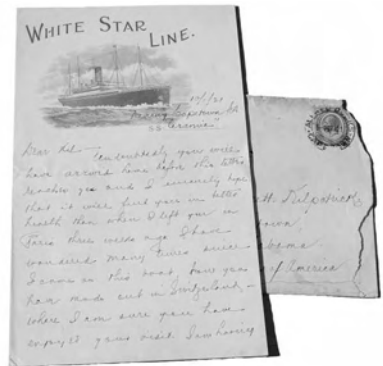 WHITE STAR
LINE.
S.S. "Ceramic"
Dear
Undoubtedly you will
have arrived home before this letter
reaches you and I sincerely hope
that it will find you in better
health than when I left you in
Paris three weeks ago. I have
wondered many times since
I came on this boat, how you
have made out in Switzerland, -
where I am sure you have
enjoyed your visit. I am having
Kilpatrick,
town,
bama,
of America